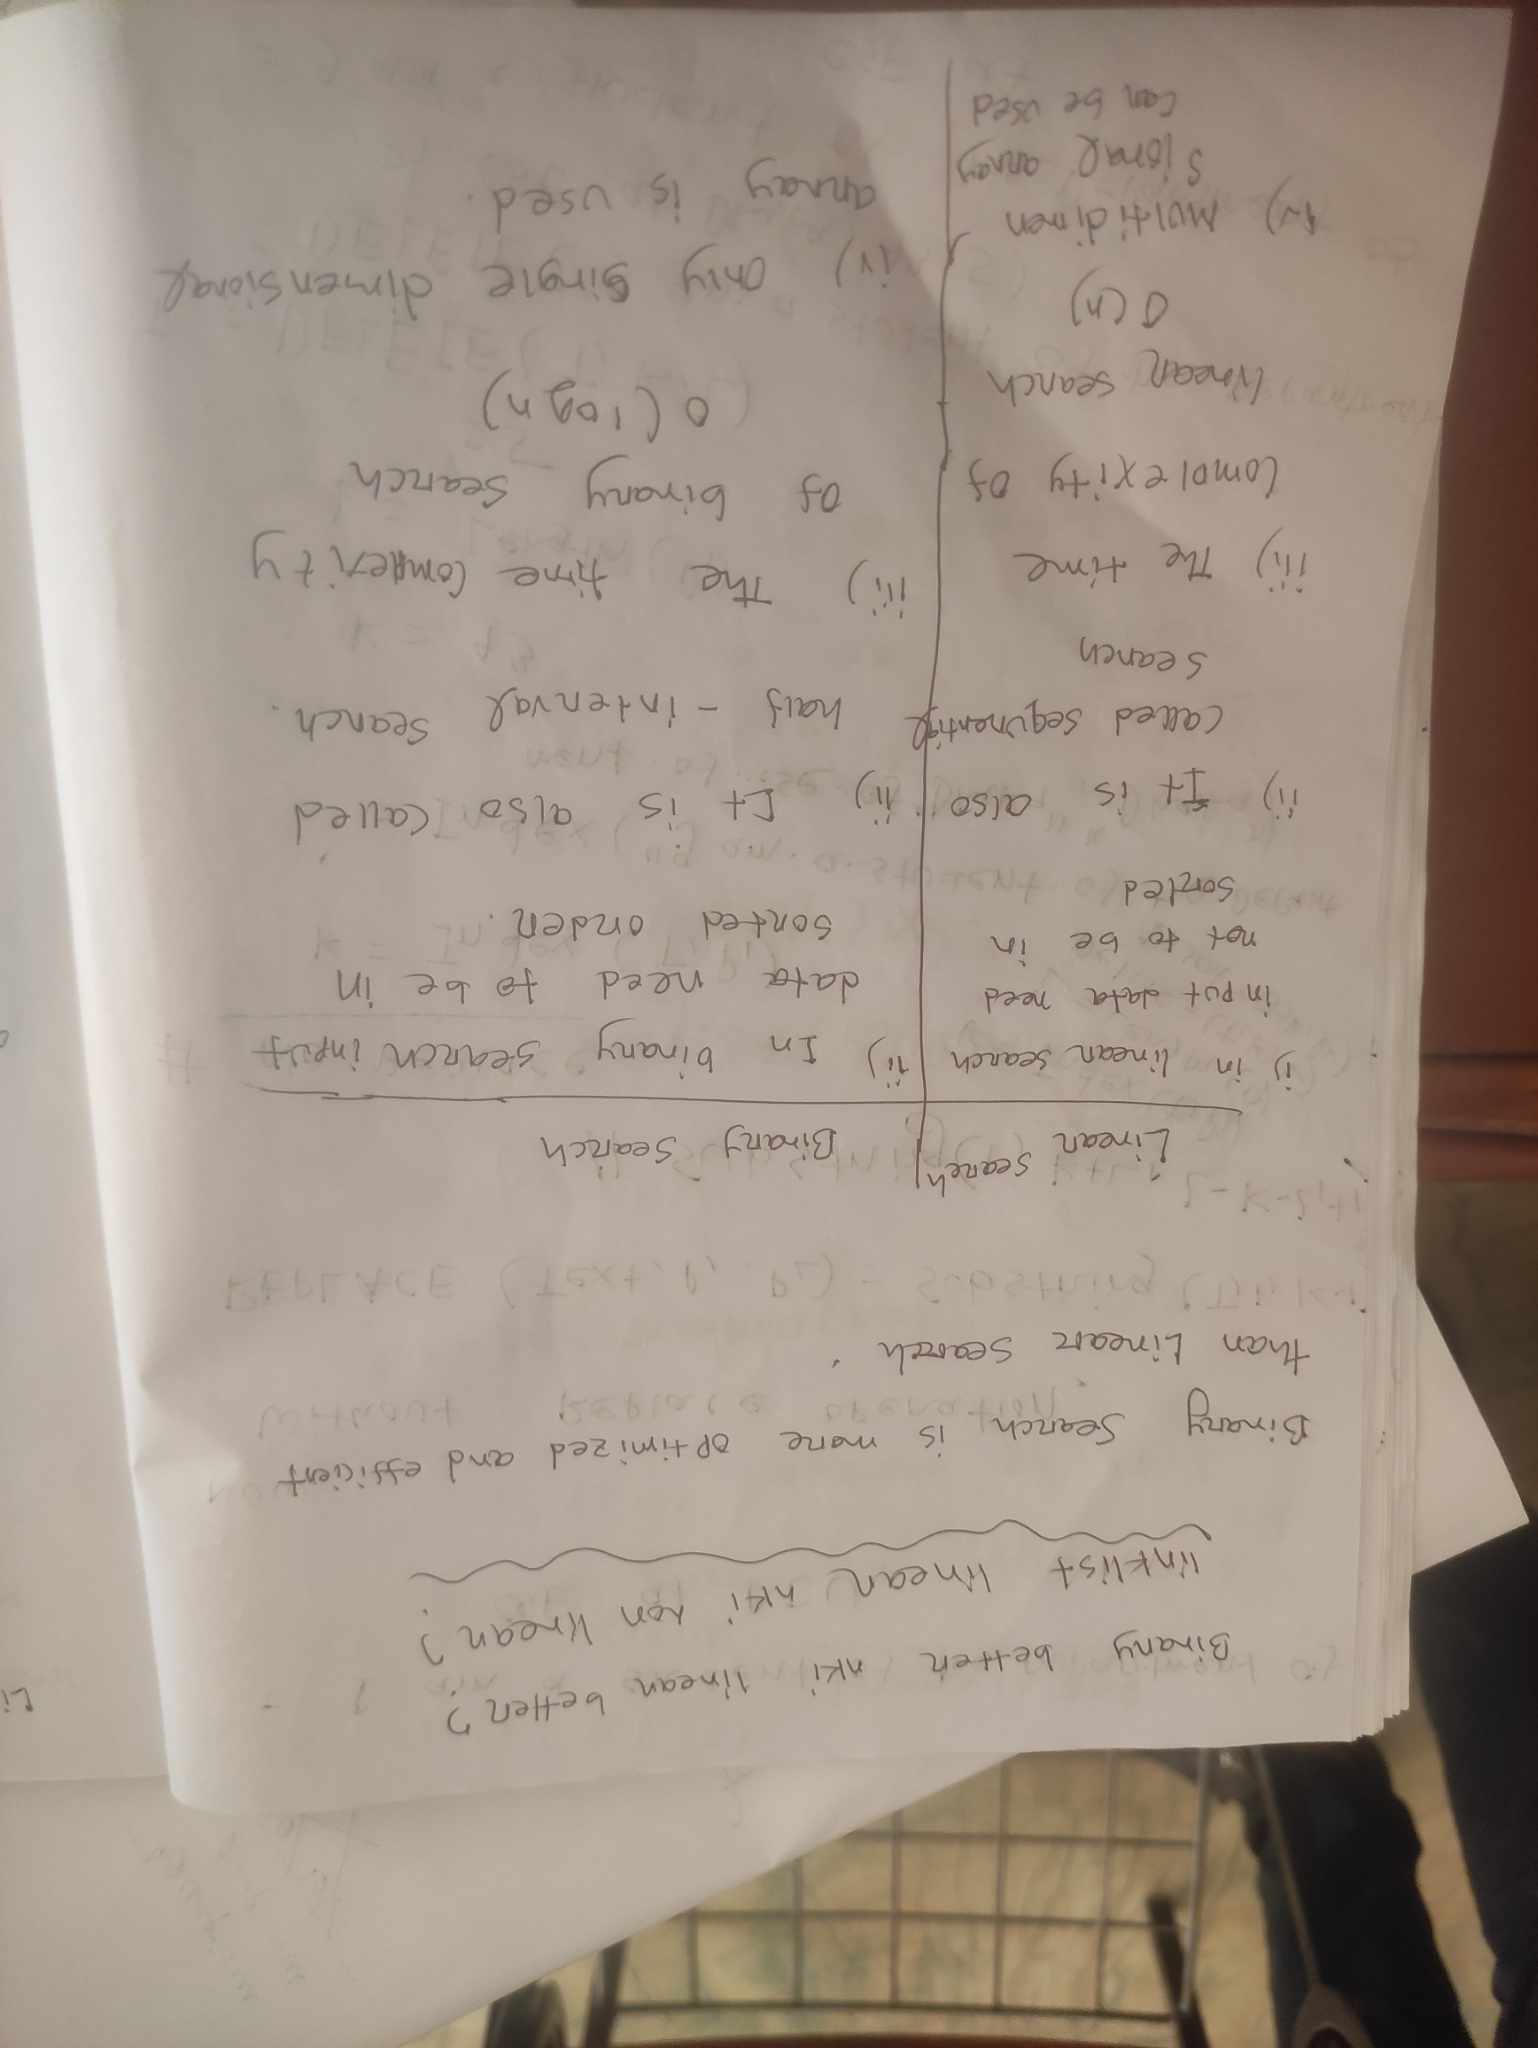 Binary better nki linear better?
linklist linear nki non linear?
Binary Search is more optimized and efficient
than Linear search.
Linear search
Binary search
i) in linear search
input data need
not to be in
sorted
ii) In binary search input
data need to be in
sorted order.
ii) It is also
called sequnential
search
ii) It is also called
half - interval search.
iii) The time
complexity of
linear search
O(n)
iii) The time complexity
of binary search
O(log n)
iv) Multidimen
sional array
can be used
iv) Only single dimensional
array is used.
Li